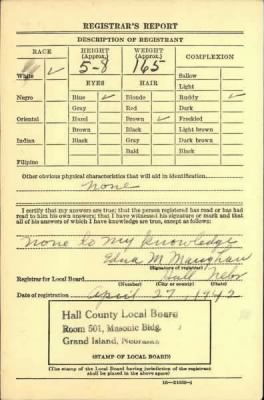 REGISTRAR'S REPORT
DESCRIPTION OF REGISTRANT
RACE
HEIGHT (Approx.)
WEIGHT (Approx.)
COMPLEXION
White ✓
5-8
165
Sallow
EYES
HAIR
Light
Negro
Blue ✓
Blonde
Ruddy ✓
Gray
Red
Dark
Oriental
Hazel
Brown ✓
Freckled
Brown
Black
Light brown
Indian
Black
Gray
Dark brown
Bald
Black
Filipino
Other obvious physical characteristics that will aid in identification
None
I certify that my answers are true; that the person registered has read or has had
read to him his own answers; that I have witnessed his signature or mark and that
all of his answers of which I have knowledge are true, except as follows:
None to my knowledge
Edna M. Maughan
(Signature of registrar)
Registrar for Local Board
Hall Nebr
(Number) (City or county) (State)
Date of registration April 27, 1942
Hall County Local Board
Room 501, Masonic Bldg.
Grand Island, Nebraska
(STAMP OF LOCAL BOARD)
(The stamp of the Local Board having jurisdiction of the registrant
shall be placed in the above space)